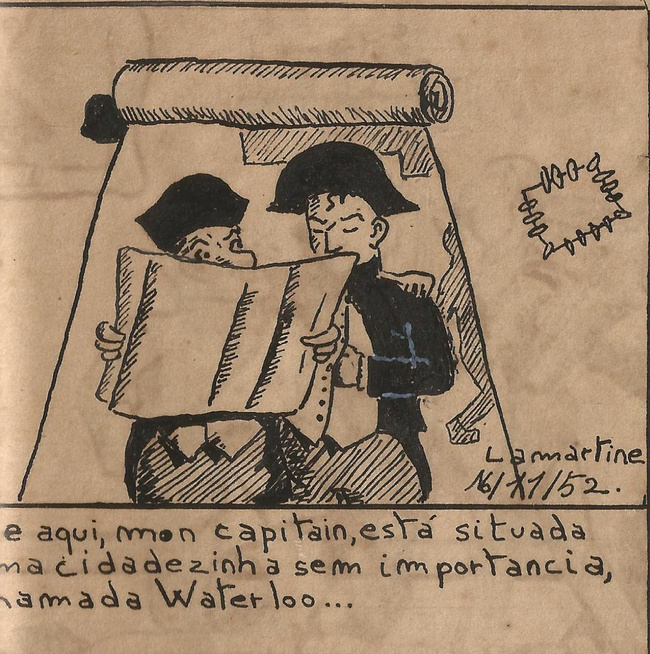 Lammartine
16/11/52.
e aqui, mon capitain, está situada
ma cidadezinha sem importancia,
hamada Waterloo...